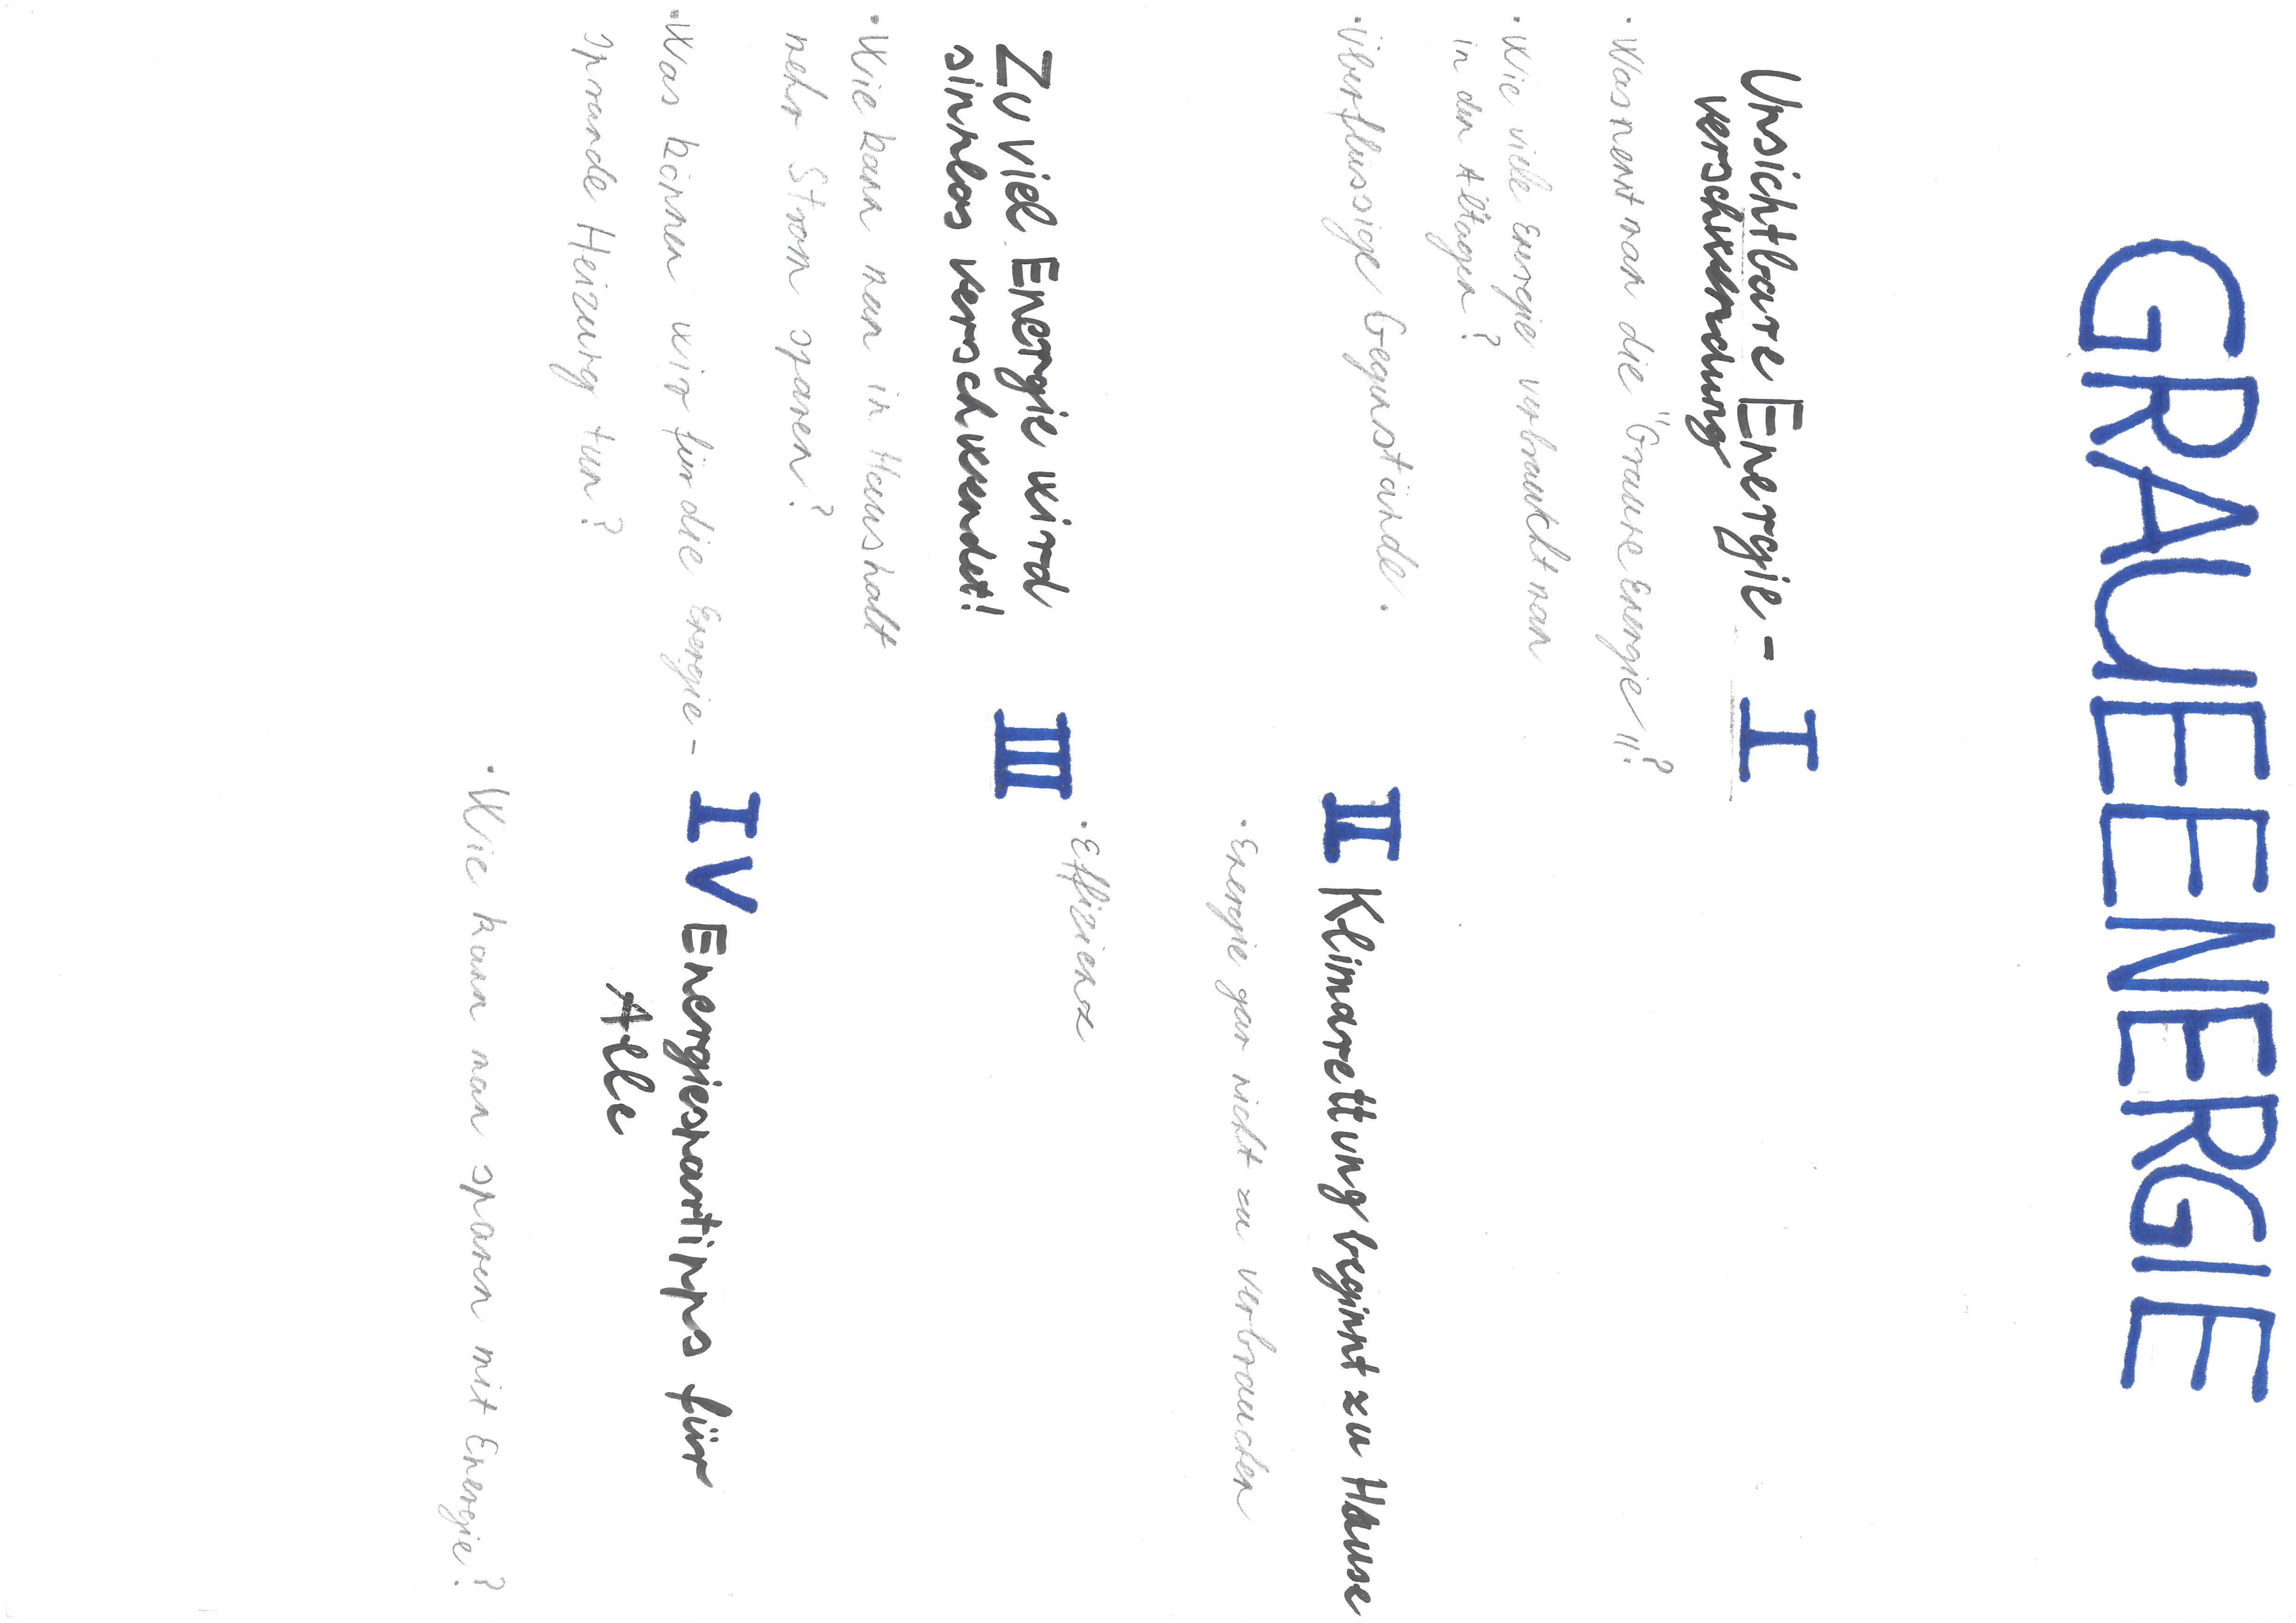 GRAUE ENERGIE
Unsichtbare Energie- I
verschwendung
·Was nent man die "Graue Energie"?
·Wie viele Energie verbraucht man
in den Altagen?
·Überflüssige Gegenstände.
II Klimarettung beginnt zu Hause
·Energie gar nicht zu verbrauchen
·Effizienz
Zu viel Energie wird III
sinnlos verschwendet!
·Wie kann man in Haushalt
mehr Strom sparen?
·Was können wir für die Energie-
sparende Heizung tun?
IV Energiespartipps für
Alle
·Wie kann man sparen mit Energie?